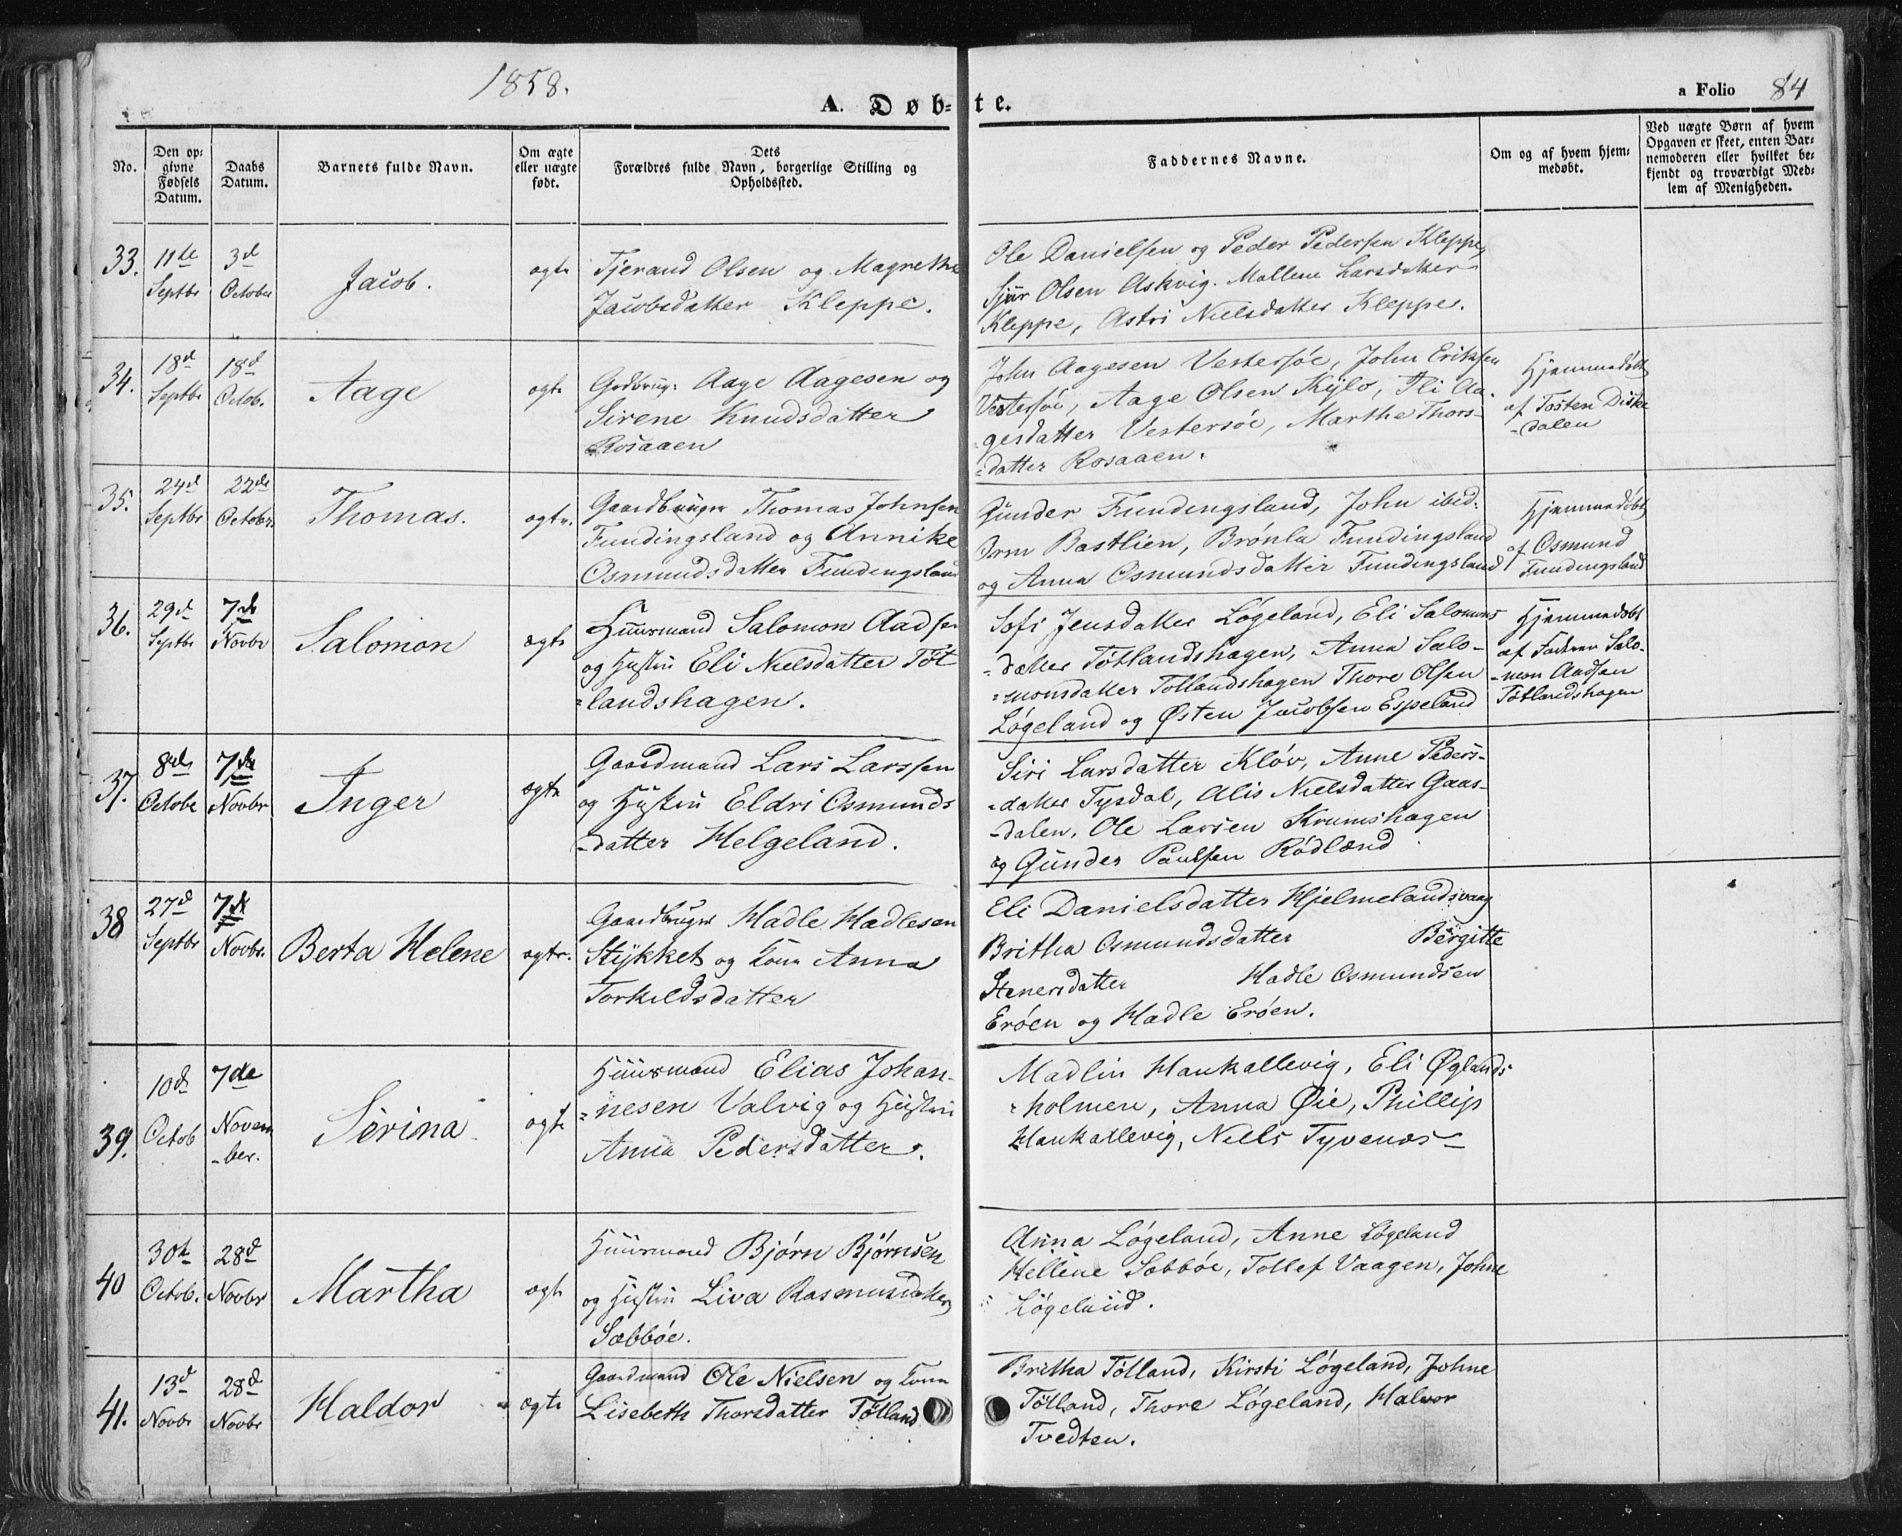 1858.
A. Døbte.
a Folio 84
No.
Den op-
givne
Fødsels
Datum.
Daabs
Datum.
Barnets fulde Navn.
Om ægte
eller uægte
født.
Dets
Forældres fulde Navn, borgerlige Stilling og
Opholdssted.
Faddernes Navne.
Om og af hvem hjem-
medøbt.
Ved uægte Børn af hvem
Opgaven er skeet, enten Bar-
nemoderen eller hvilket be-
kjendt og troværdigt Med-
lem af Menigheden.
33.
11te
Septbr
3d
October
Jacob.
ægte
Tjerand Olsen og Magrethe
Jacobsdatter Kleppe.
Ole Danielsen og Peder Pedersen Kleppe,
Sjur Olsen Askvig. Mallene Larsdatter
Kleppe, Astri Nielsdatter Kleppe.
34.
18d
Septbr
18d
Octob.
Aage
ægte
Gdbrug: Aage Aagesen og
Sirene Knudsdatter
Rosaaen
John Aagesen Vestersøe, John Eriksen
Vestersøe, Aage Olsen Kylo, Eli Aa-
gesdatter Vestersöe, Marthe Thors-
datter Rosaaen.
Hjemmedøbt
af Tosten Diske
-dalen
35.
24d
Septbr
22de
Octobr
Thomas.
ægte.
Gaardbruger Thomas Johnsen
Fundingsland og Annike
Osmundsdatter Fundingsland
Gunder Fundingsland, John ibid:
Orm Bastlien, Brönla Fundingsland
og Anna Osmundsdatter Fundingsland
Hjemmedøbt
af Osmund
Fundingsland
36.
29d
Septbr
7de
Novbr
Salomon
ægte
Huusmand Salomon Aadsen
og Hustru Eli Nielsdatter Töt
-landshagen.
Sofi Jensdatter Løgeland, Eli Salomons
-datter Tötlandshagen, Anna Salo-
-monsdatter Totlandshagen Thore Olsen
Løgeland og Østen Jacobsen Espeland
Hjemmedøbt
af Faderen Salo-
-mon Aadsen
Tötlandshagen
37.
8de
Octobr
7de
Novbr
Inger
ægte
Gaardmand Lars Larssen
og Hustru Eldri Osmunds
-datter Helgeland.
Siri Larsdatter Kløv, Anne Peders-
-datter Tysdal, Alis Nielsdatter Gaas-
-dalen, Ole Larsen Krumshagen
og Gunder Paulsen Rödland
38
27d
Septbr
7de
Novbr.
Berta Helene
ægte.
Gaardbruger Hadle Hadlesen
Stykket og Kone Anna
Torkildsdatter
Eli Danielsdatter Hjelmelandsvaag
Britha Osmundsdatter Bergitte
Stenersdatter Hadle Osmundsen
Eröen og Hadle Eröen.
39.
10d
Octob
7de
Novem
-ber.
Serina
ægte
Huusmand Elias Johan-
-nesen Valvig og Hustru
Anna Pedersdatter.
Madlin Haukallevig, Eli Øglands-
holmen, Anna Øie, Phillip
Haukallevig, Niels Tyvenæs
40
30te
Octob.
28d
Novbr
Martha
ægte
Huusmand Bjørn Bjørnsen
og Hustru Liva Rasmusdatter
Sæbböe.
Anna Løgeland, Anne Løgeland
Hellene Sæbböe, Tollef Vaagen, Johne
Løgeland.
41.
13d
Novbr
28d
Novbr
Haldor
ægte
Gaardmand Ole Nielsen og Kone
Lisebeth Thorsdatter Tötland
Britha Tötland, Kirsti Løgeland, Johne
Tötland, Thore Løgeland, Halvor
Tvedten.